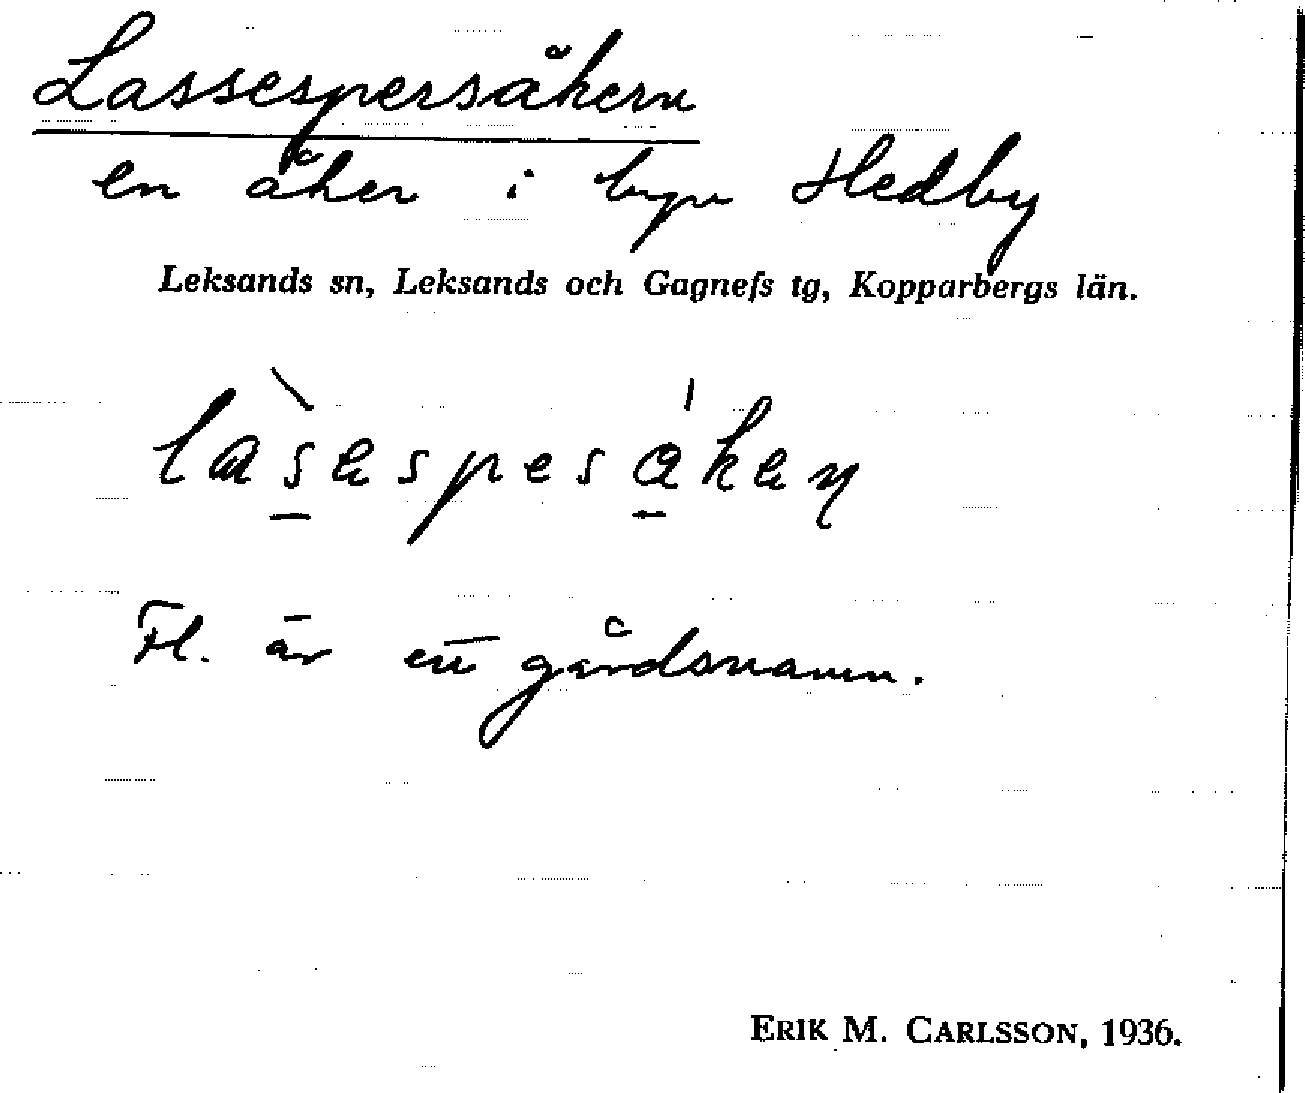 Lassespersåkern
en åker i byn Hedby
Leksands sn, Leksands och Gagnefs tg, Kopparbergs län.
lasespesåken
Fl. är ett gårdsnamn.
ERIK M. CARLSSON, 1936.